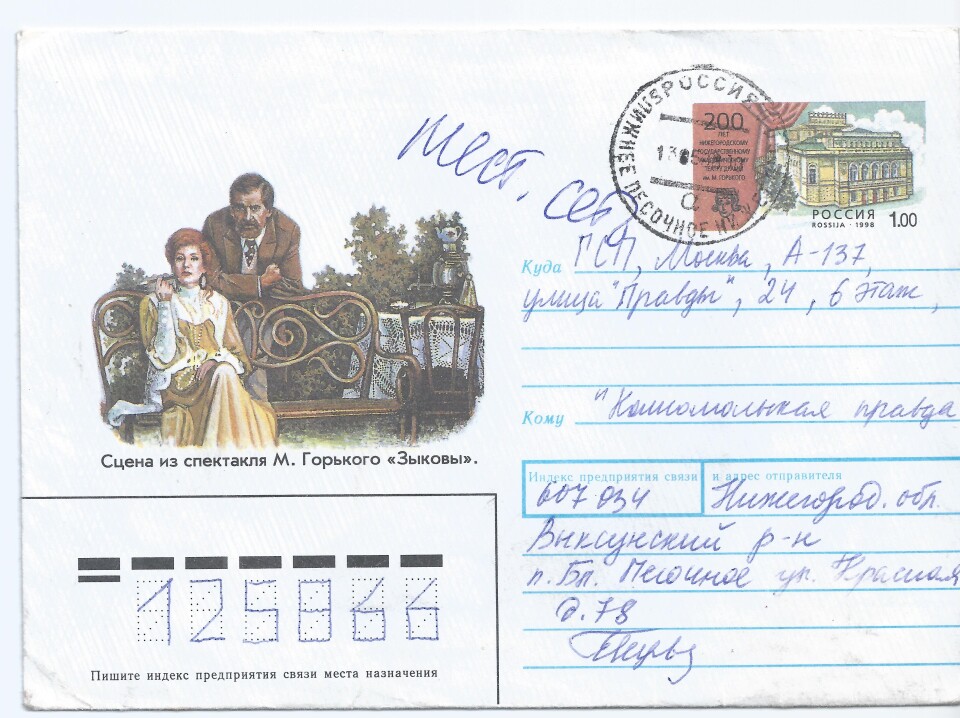 жест. сер
200
ЛЕТ
НИЖЕГОРОДСКОМУ
ГОСУДАРСТВЕННОМУ
ТЕАТРУ ДРАМЫ
ИМ. М. ГОРЬКОГО
РОССИЯ
ROSSIJA · 1998
1.00
РОССИЯ
ПЕСОЧНОЕ
а
Куда ГСП, Москва, А-137,
улица "Правды", 24, 6 этаж,
Кому "Комсомольская правда
Сцена из спектакля М. Горького «Зыковы».
Индекс предприятия связи и адрес отправителя
607034 Нижегород. обл.
Выксунский р-н
п. Бл. Песочное ул. Красная
д. 78
125866
Пишите индекс предприятия связи места назначения